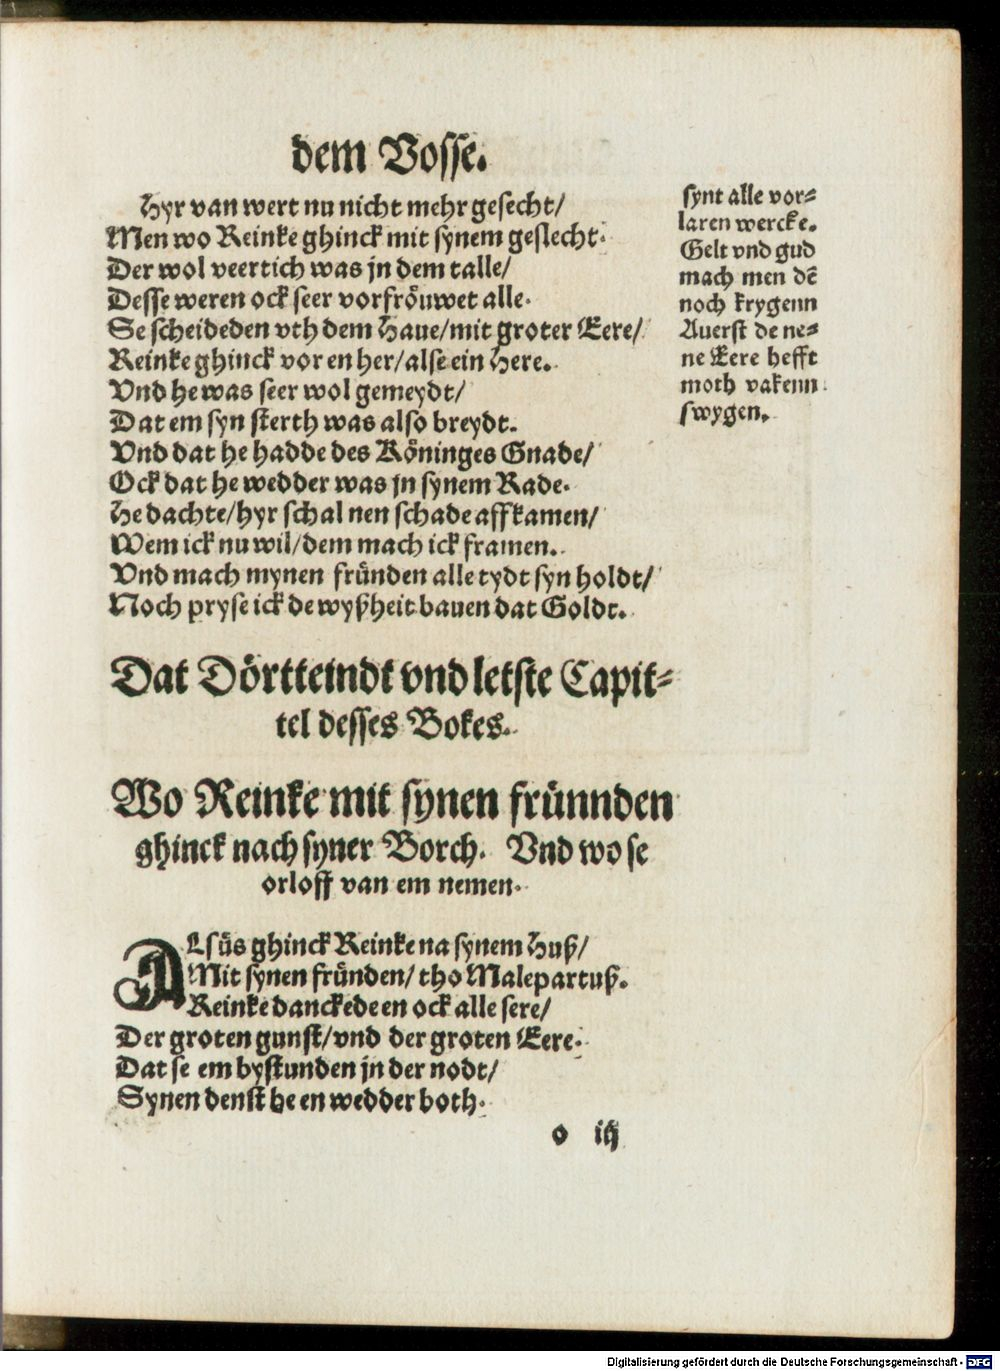 dem Vosse.
Hyr van wert nu nicht mehr gesecht/
Men wo Reinke ghinck mit synem geslecht.
Der wol veertich was jn dem talle/
Desse weren ock seer vorfröuwet alle.
Se scheideden vth dem Haue/mit groter Eere/
Reinke ghinck vor en her/alse ein Here.
Vnd he was seer wol gemeydt/
Dat em syn sterth was also breydt.
Vnd dat he hadde des Köninges Gnade/
Ock dat he wedder was jn synem Rade.
He dachte/hyr schal nen schade affkamen/
Wem ick nu wil/dem mach ick framen.
Vnd mach mynen fründen alle tydt syn holdt/
Noch pryse ick de wyßheit bauen dat Goldt.
synt alle vor-
laren wercke.
Gelt vnd gud
mach men dē
noch krygenn
Auerst de ne-
ne Eere hefft
moth vakenn
swygen.
Dat Dörtteindt vnd letste Capit-
tel desses Bokes.
Wo Reinke mit synen frünnden
ghinck nach syner Borch. Vnd wo se
orloff van em nemen.
ALsüs ghinck Reinke na synem Huß/
Mit synen fründen/ tho Malepartuß.
Reinke danckede en ock alle sere/
Der groten gunst/vnd der groten Eere.
Dat se em bystunden jn der nodt/
Synen denst he en wedder both.
o iij
Digitalisierung gefördert durch die Deutsche Forschungsgemeinschaft - DFG